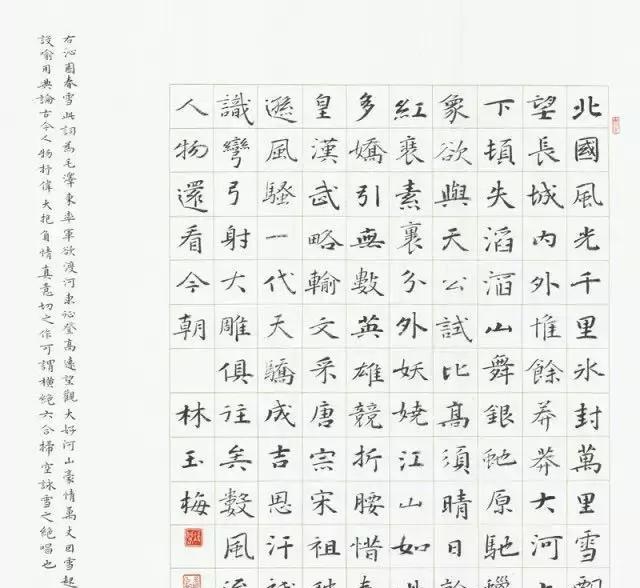 北國風光千里冰封萬里雪飄
望長城內外惟餘莽莽大河上
下頓失滔滔山舞銀虵原馳蠟
象欲與天公試比高須晴日
紅裝素裹分外妖嬈江山如此
多嬌引無數英雄競折腰惜秦
皇漢武略輸文采唐宗宋祖稍
遜風騷一代天驕成吉思汗
識彎弓射大雕俱往矣數風流
人物還看今朝 林玉梅
右沁園春雪此詞為毛澤東率軍欲渡河東登高遠望觀大好河山豪情萬丈因雪起
設喻用典論古今人物抒偉大抱負情真意切之作可謂橫絕六合掃空詠雪之絕唱也